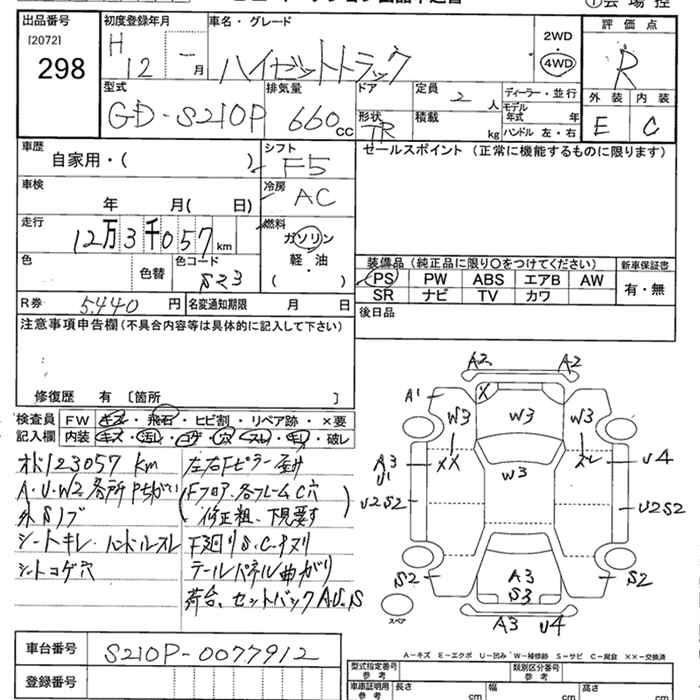 出品番号
[2072]
298
初度登録年月
H 12 - 月
車名・グレード
ハイゼットトラック
2WD
4WD
評価点
R
外装 内装
E C
型式
GD-S210P
排気量
660 cc
ドア
形状
TR
定員
2 人
積載
kg
ディーラー・並行
モデル年式 年
ハンドル 左・右
車歴
自家用・( )
シフト
F5
セールスポイント (正常に機能するものに限ります)
車検
年 月( 日)
冷房
AC
走行
12万3千057 km
燃料
ガソリン
軽・油
( )
色
色替
色コード
S23
R券 5,440 円
名変通知期限 月 日
装備品 (純正品に限り○をつけてください)
新車保証書
PS PW ABS エアB AW
SR ナビ TV カワ
有・無
後日品
注意事項申告欄(不具合内容等は具体的に記入して下さい)
修復歴 有 〔箇所 〕
検査員記入欄
FW キズ・飛石・ヒビ割・リペア跡・×要
内装 キズ・汚レ・コゲ・穴・スレ・キレ・破レ
オド123057 km
A・U・W2 各所Pちがい
外Sリブ
シートキレ・ハンドルスレ
シートコゲ穴
左右Fピラー歪み
(Fフロア、各フレームC穴
修正粗、下見要す)
下廻りS・C・キズリ
テールパネル曲がり
荷台、セットバックA・U・S
A2 A2
A1 X
W3 W3 W3
A3 U1 XX W3 スレ U4
U2S2 U2S2
S2 A3 S2
S3
A3 U4
スペア
A-キズ E-エクボ U-凹み W-補修跡 S-サビ C-腐食 ××-交換済
車台番号
S210P-0077912
登録番号
型式指定番号
参考
類別区分番号
参考
車庫証明用
参考
長さ cm
幅 cm
高さ cm